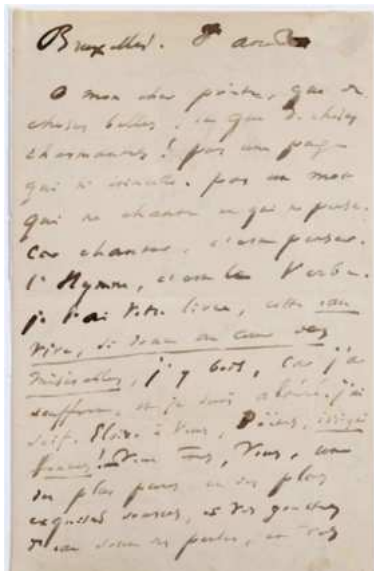 Bruxelles. 8 août
O mon cher poète, que de
choses belles, et que de choses
charmantes ! pas une page
qui n'étincelle. pas un mot
qui ne chante et qui ne pense.
Car chanter, c'est penser.
l'Hymne, c'est le Verbe.
je l'ai votre livre, cette eau
vive, si douce au cœur des
misérables, j'y bois, car j'ai
souffert, et je suis altéré. j'ai
soif. Gloire à vous, Poëtes,
sources ! Vous êtes, vous, une
des plus pures et des plus
exquises sources, et vos gouttes
d'eau sont des perles, et vos